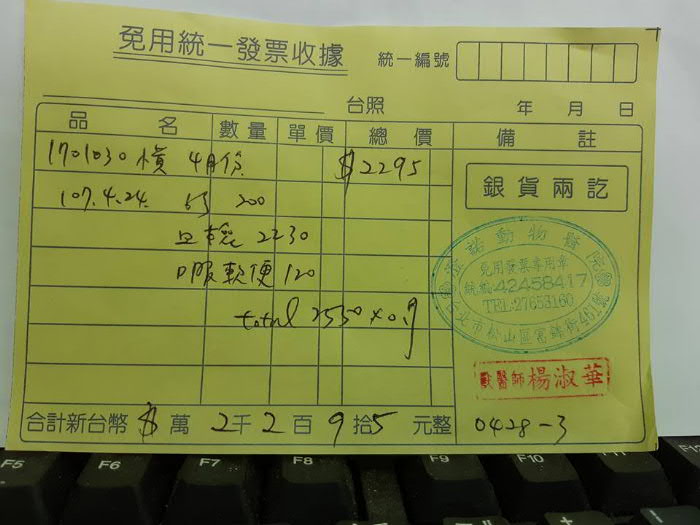 免用統一發票收據
統一編號
台照 年 月 日
品 名 數量 單價 總 價 備 註
1701030 橫 4月份 $2295
107.4.24. 200
2230
口服軟便 120
total 2550×0.9
銀貨兩訖
動物醫院
免用發票專用章
統編:42458417
TEL:27653160
北市松山區富錦街
獸醫師 楊淑華
合計新台幣 $ 萬 2千 2百 9拾 5元整
0428-3
F5 F6 F7 F8 F9 F10 F11 F12